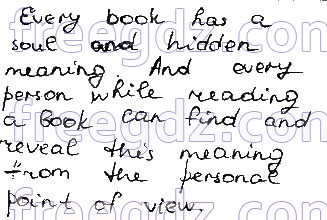 Every book has a
soul and hidden
meaning. And every
person while reading
a book can find and
reveal this meaning
from the personal
point of view.